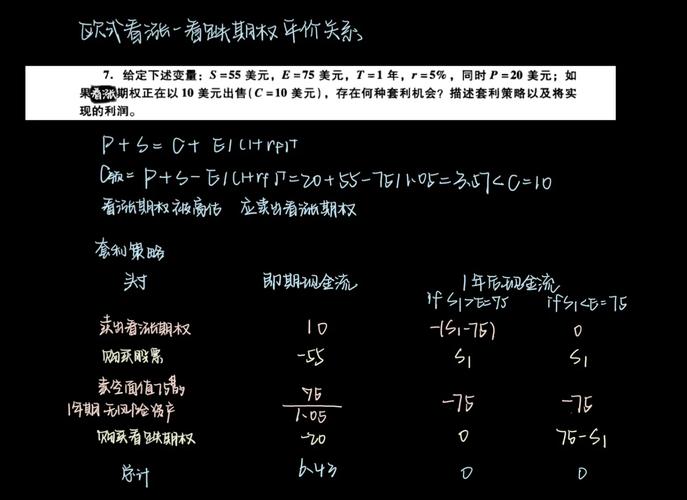 欧式看涨-看跌期权平价关系
7. 给定下述变量：S=55 美元，E=75 美元，T=1 年，r=5%，同时 P=20 美元；如
果看涨期权正在以 10 美元出售(C=10 美元)，存在何种套利机会？描述套利策略以及将实
现的利润。
P+S=C+E/(1+rf)T
C权=P+S-E/(1+rf)T=20+55-75/1.05=3.57<C=10
看涨期权被高估 应卖出看涨期权
套利策略
头寸 即期现金流 1年后现金流
if S1>E=75 if S1<E=75
卖出看涨期权 10 -(S1-75) 0
购买股票 -55 S1 S1
卖空面值75的 75/1.05 -75 -75
1年期无风险资产
购买看跌期权 -20 0 75-S1
总计 6.43 0 0